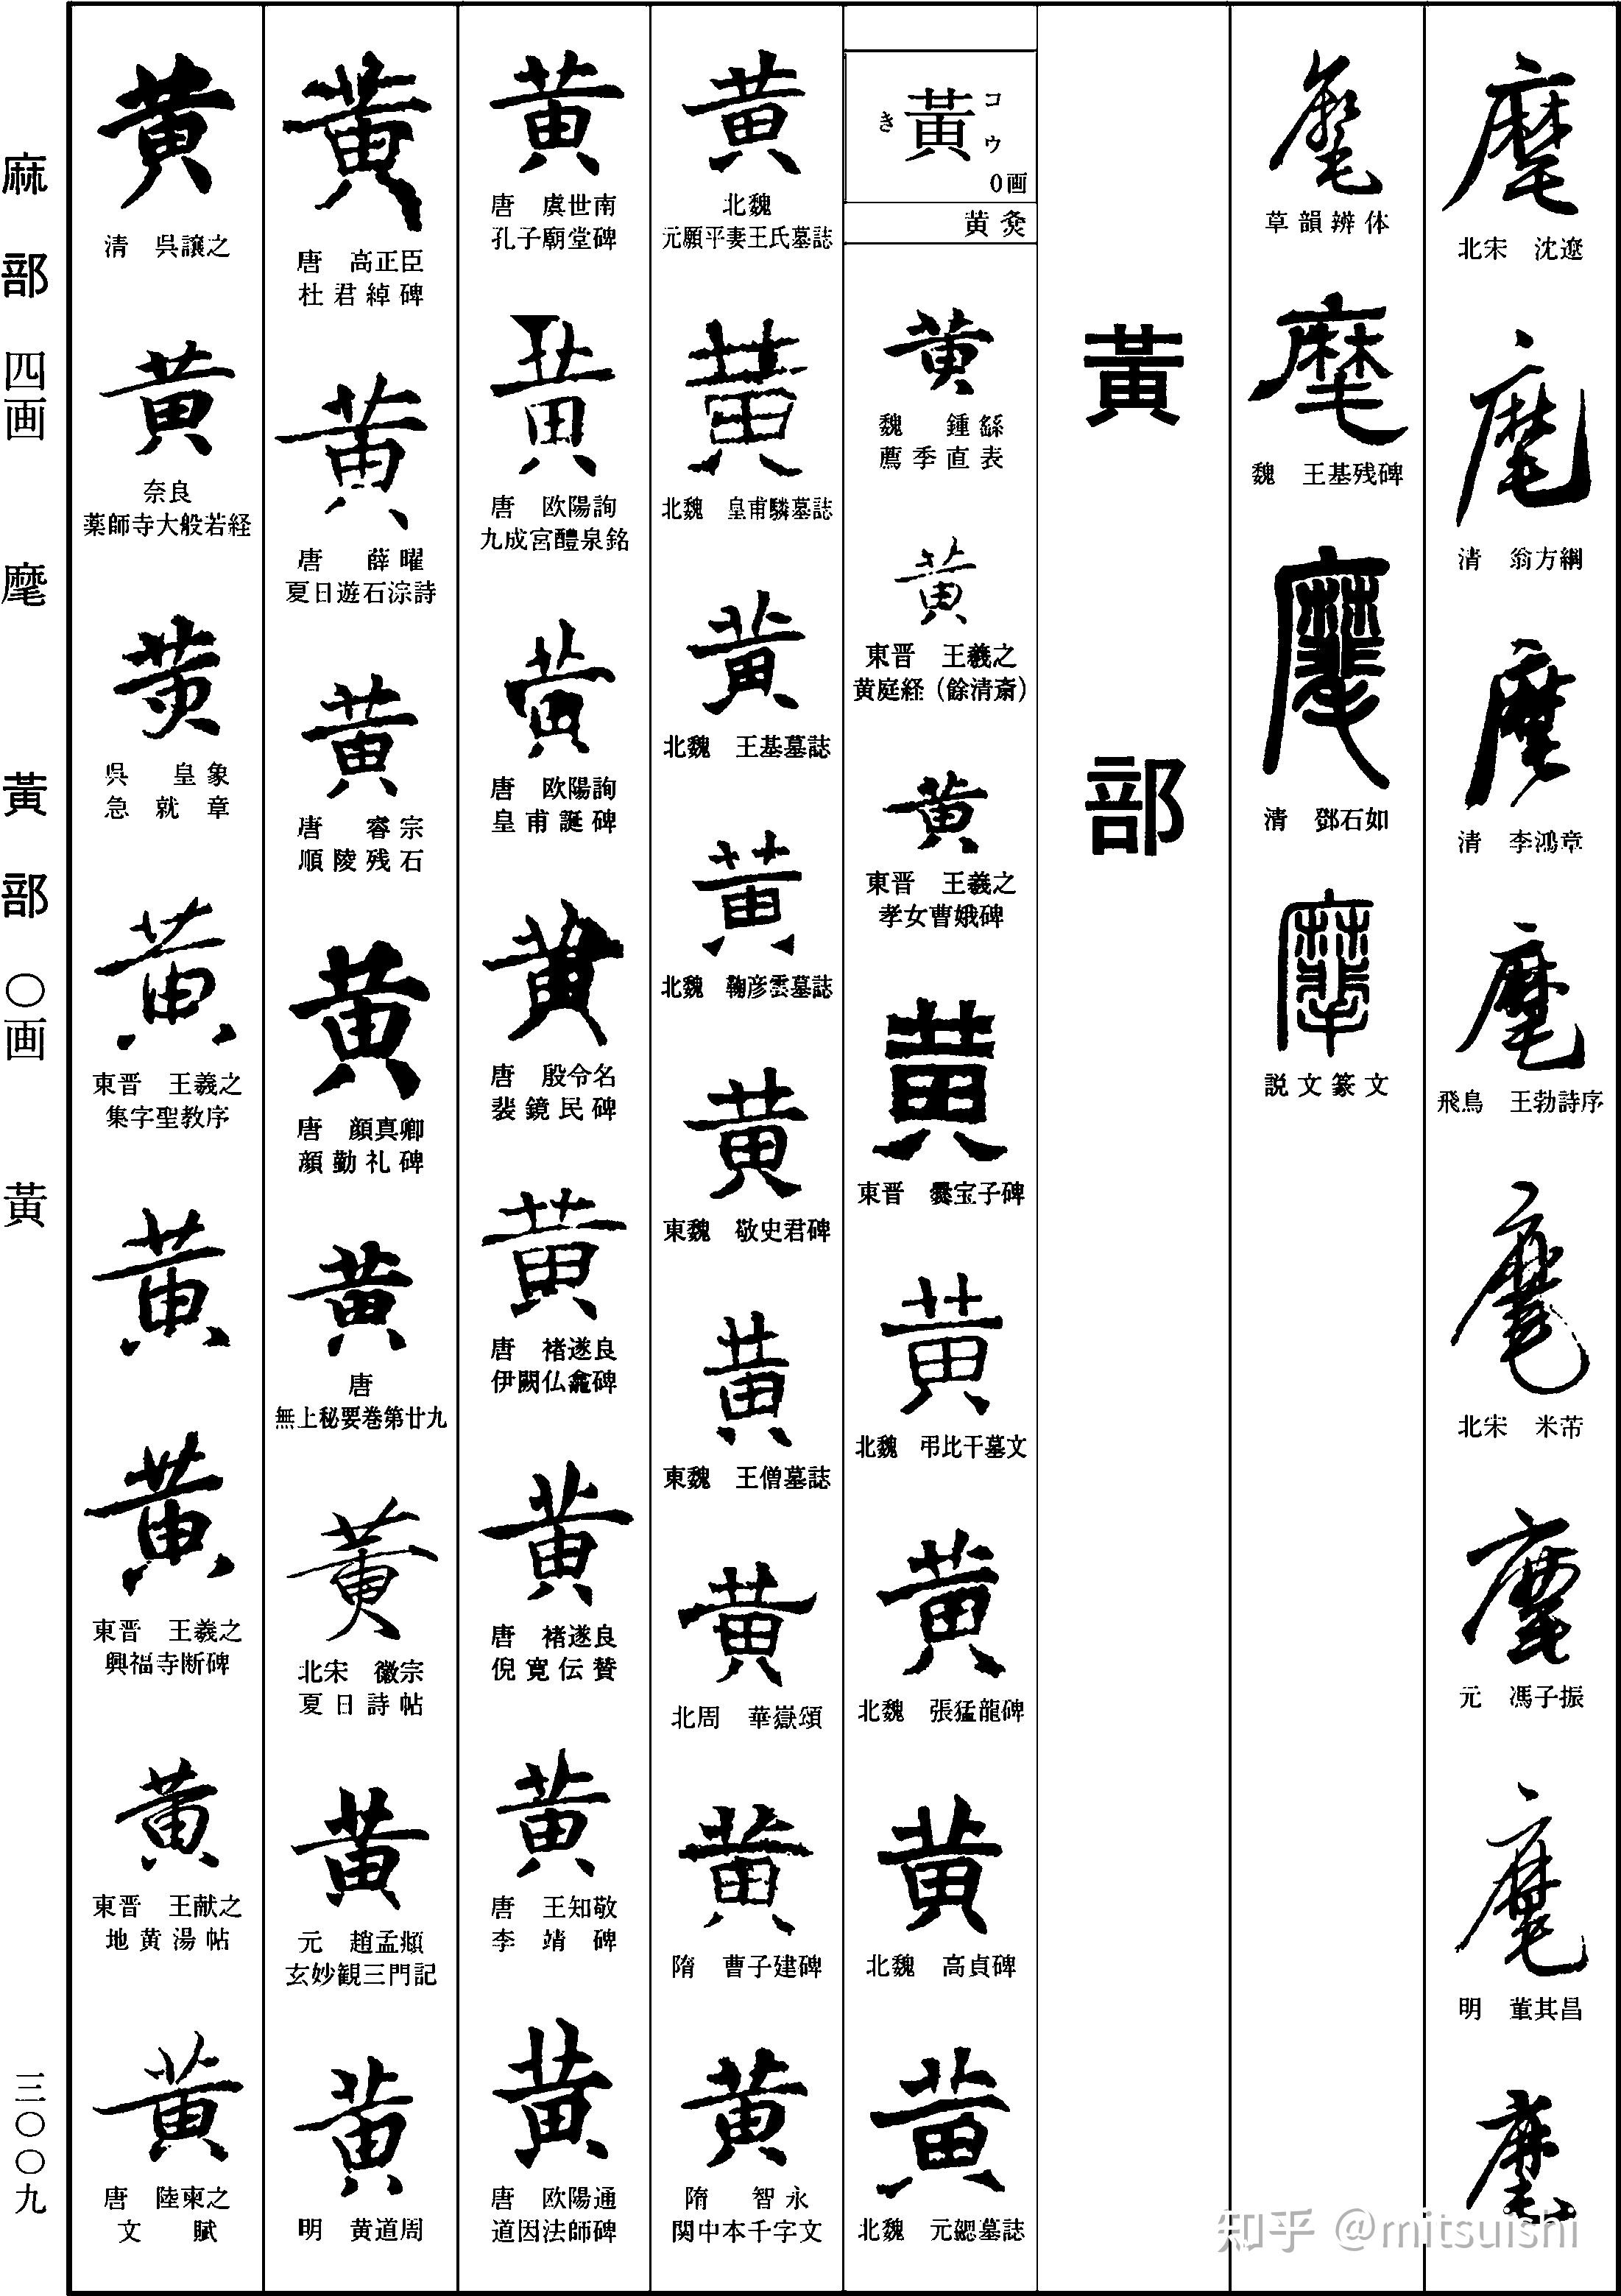 麾
北宋 沈遼
麾
清 翁方綱
麾
清 李鴻章
麾
飛鳥 王勃詩序
麾
北宋 米芾
麾
元 馮子振
麾
明 董其昌
麾
麾
草韻辨体
麾
魏 王基残碑
麾
清 鄧石如
麾
説文篆文
黃部
黃
コウ
き
0画
黄灸
黄
魏 鍾繇
薦季直表
黄
東晋 王羲之
黄庭経（餘清斎）
黄
東晋 王羲之
孝女曹娥碑
黄
東晋 爨宝子碑
黄
北魏 弔比干墓文
黄
北魏 張猛龍碑
黄
北魏 高貞碑
黄
北魏 元勰墓誌
黄
北魏
元願平妻王氏墓誌
黄
北魏 皇甫驎墓誌
黄
北魏 王基墓誌
黄
北魏 鞠彦雲墓誌
黄
東魏 敬史君碑
黄
東魏 王僧墓誌
黄
北周 華嶽頌
黄
隋 曹子建碑
黄
隋 智永
関中本千字文
黄
唐 虞世南
孔子廟堂碑
黄
唐 欧陽詢
九成宮醴泉銘
黄
唐 欧陽詢
皇甫誕碑
黄
唐 殷令名
裴鏡民碑
黄
唐 褚遂良
伊闕仏龕碑
黄
唐 褚遂良
倪寛伝賛
黄
唐 王知敬
李靖碑
黄
唐 欧陽通
道因法師碑
黄
唐 高正臣
杜君綽碑
黄
唐 薛曜
夏日遊石淙詩
黄
唐 睿宗
順陵残石
黄
唐 顔真卿
顔勤礼碑
黄
唐
無上秘要巻第廿九
黄
北宋 徽宗
夏日詩帖
黄
元 趙孟頫
玄妙観三門記
黄
明 黄道周
黄
清 呉譲之
黄
奈良
薬師寺大般若経
黄
呉 皇象
急就章
黄
東晋 王羲之
集字聖教序
黄
黄
東晋 王羲之
興福寺断碑
黄
東晋 王献之
地黄湯帖
黄
唐 陸柬之
文賦
麻部 四画 麾 黃部 〇画 黃
三〇〇九
知乎 @mitsuishi